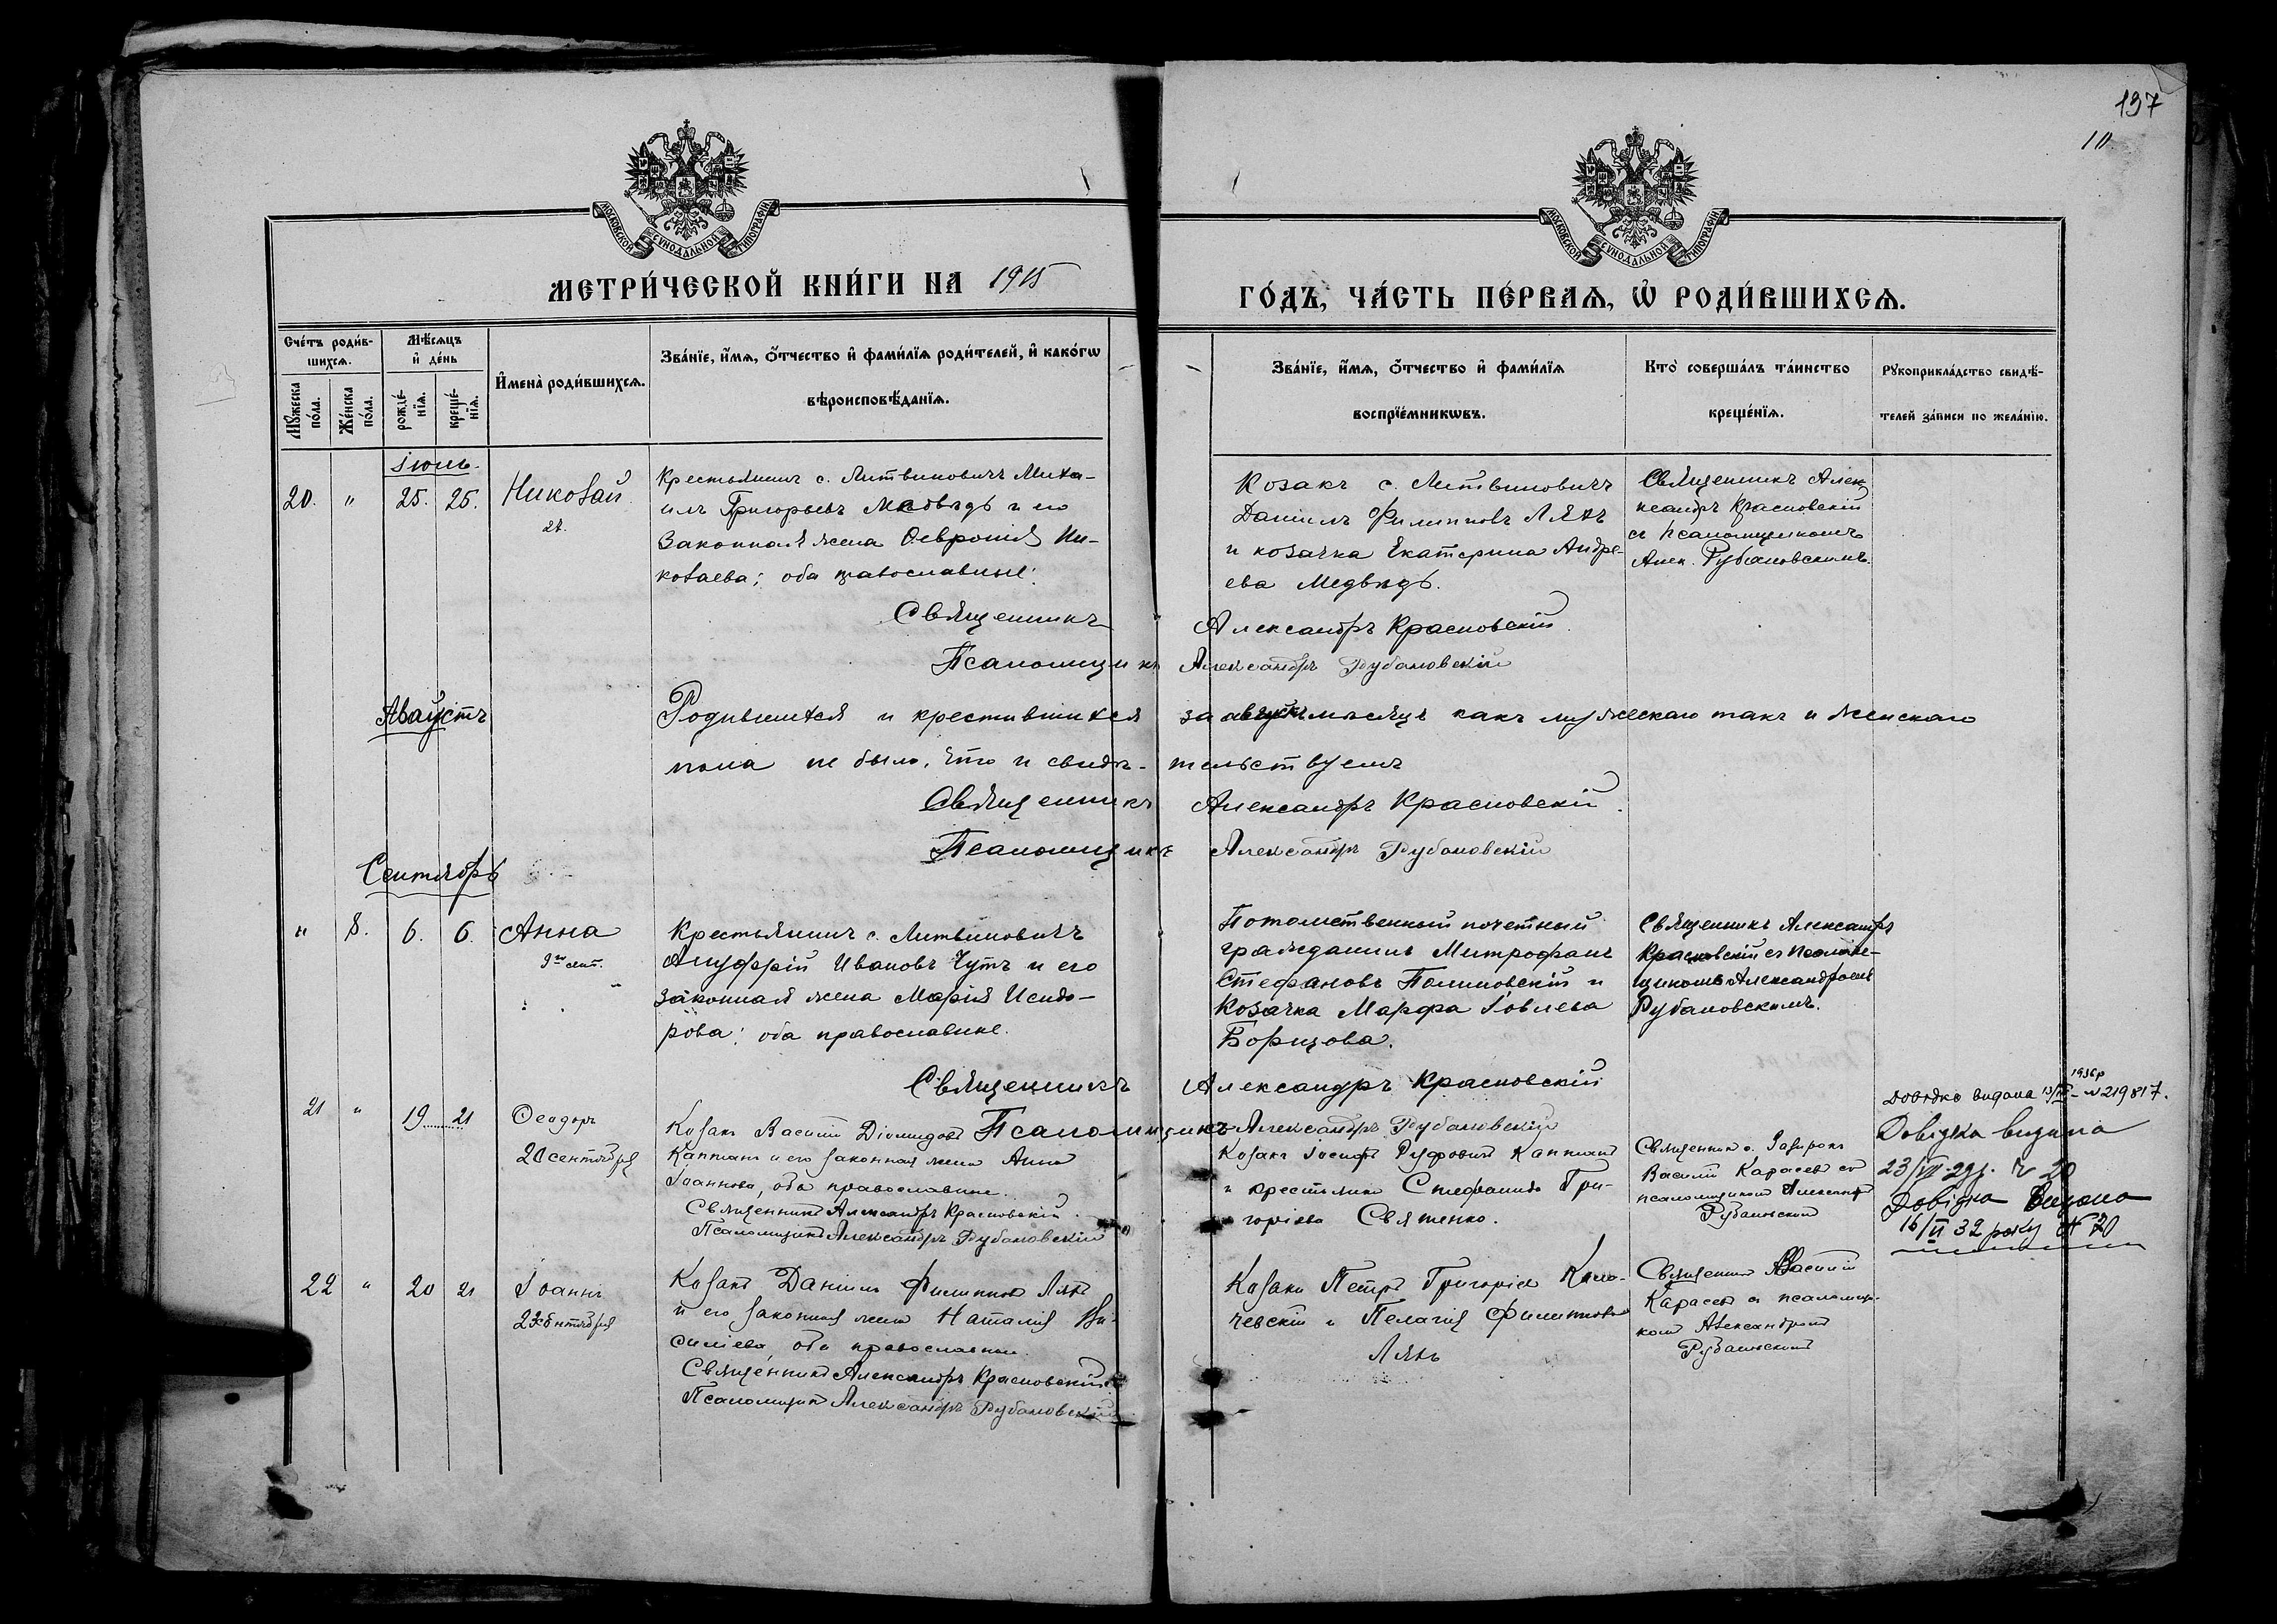 197
10
МОСКОВСКОЙ СѴНОДАЛЬНОЙ ТИПОГРАФІИ
МОСКОВСКОЙ СѴНОДАЛЬНОЙ ТИПОГРАФІИ
МЕТРИ́ЧЕСКОЙ КНИ́ГИ НА 1915
ГО́ДЪ, ЧА́СТЬ ПЕ́РВАѦ, Ѡ҆ РОДИ́ВШИХСѦ.
Сче́тъ роди́в-
шихсѧ.
Мꙋ́жеска
по́ла.
Же́нска
по́ла.
Мѣ́сѧцъ
и҆ де́нь
рожде́-
нїѧ.
креще́-
нїѧ.
И҆мена̀ роди́вшихсѧ.
Зва́нїе, и҆́мѧ, ѻ҆́тчество и҆ фами́лїѧ роди́телей, и҆ како́гѡ
вѣроисповѣ́данїѧ.
Зва́нїе, и҆́мѧ, ѻ҆́тчество и҆ фами́лїѧ
воспрїе́мникѡвъ.
Кто̀ соверша́лъ та́инство
креще́нїѧ.
Рꙋкоприкла́дство свидѣ́-
телей за́писи по жела́нїю.
Іюль.
20. " 25. 25. Николай
Крестьянинъ с. Литвиновичъ Миха-
илъ Григорьевъ Медвѣдь и его
законная жена Феврошія Ни-
колаева; оба православные.
Козакъ с. Литвиновичъ
Даніилъ Филипповъ Ляхъ
и козачка Екатерина Андре-
ева Медвѣдь.
Священникъ Алек
ксандръ Красновскій
съ псаломщикомъ
Алек. Рубановскимъ.
Священникъ Александръ Красновскій
Псаломщикъ Александръ Рубановскій
Августъ
Родившихся и крестившихся за августъ мѣсяцъ какъ мужескаго такъ и женскаго
пола не было, что и свидѣ-тельствуемъ
Священникъ Александръ Красновскій.
Псаломщикъ Александръ Рубановскій
Сентябрь
" 8. 6. 6. Анна
9го сент.
Крестьянинъ с. Литвиновичъ
Ануфрій Ивановъ Чутъ и его
законная жена Марія Исидо-
рова; оба православные.
Потомственный почетный
гражданинъ Митрофанъ
Стефановъ Полиновскій и
Козачка Марфа Іовлева
Борщова.
Священникъ Александръ
Красновскій съ псалом-
щикомъ Александромъ
Рубановскимъ.
Священникъ Александръ Красновскій
Псаломщикъ Александръ Рубановскій
21 " 19 21 Ѳеодоръ
20 сентября
Козакъ Василій Діомидовъ
Каппанъ и его законная жена Анна
Іоаннова, оба православные.
Священникъ Александръ Красновскій.
Псаломщикъ Александръ Рубановскій
Козакъ Іосифъ Руфовъ Каппанъ
и крестьянка Стефанида Гри-
горіева Святенко.
Священник с.
Василій Карасевъ съ
псаломщикомъ Александр
Рубановскимъ
1936р
Довідка видана 219817.
Довідка видана
23/VII 29 р. Ч 20
Довідка видана
16/II 32 року № 20
22 " 20 21 Іоаннъ
23 сентября
Козакъ Даніилъ Филипповъ Ляхъ
и его законная жена Наталія Ва-
силіева, оба православные.
Священникъ Александръ Красновскій
Псаломщикъ Александръ Рубановскій
Козаки Петръ Григоріевъ
и Пелагія Филиппова
Ляхъ
Священникъ Василій
Карасевъ съ псаломщи-
комъ Александромъ
Рубановскимъ